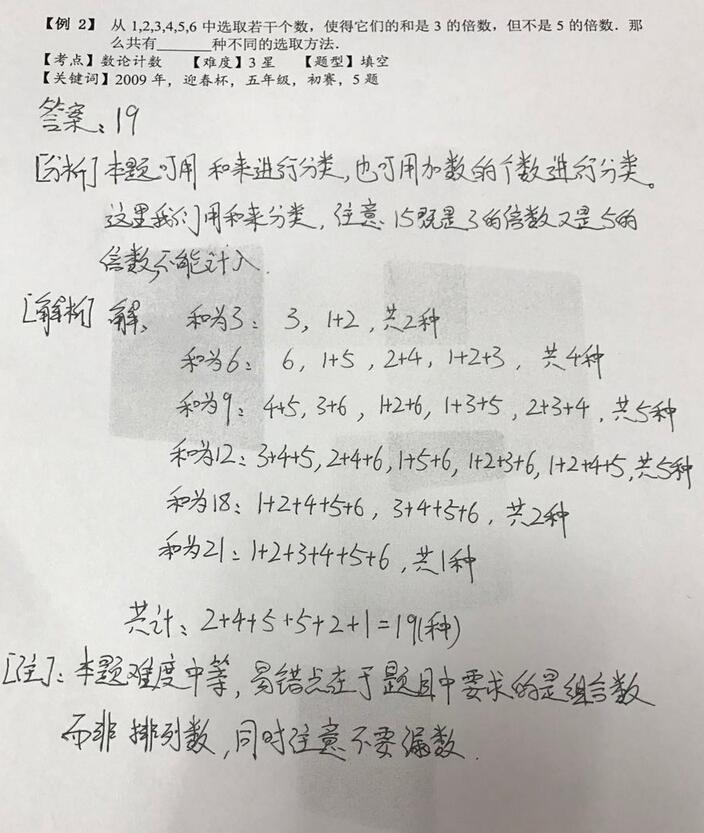 【例 2】 从 1,2,3,4,5,6 中选取若干个数，使得它们的和是 3 的倍数，但不是 5 的倍数．那
么共有______种不同的选取方法．
【考点】数论计数 【难度】3 星 【题型】填空
【关键词】2009 年，迎春杯，五年级，初赛，5 题
答案：19
[分析] 本题可用和来进行分类，也可用加数的个数进行分类。
这里我们用和来分类，注意 15既是3的倍数又是5的
倍数，不能计入．
[解析] 解： 和为3： 3，1+2，共2种
和为6： 6，1+5，2+4，1+2+3， 共4种
和为9： 4+5，3+6，1+2+6，1+3+5，2+3+4，共5种
和为12：3+4+5，2+4+6，1+5+6，1+2+3+6，1+2+4+5，共5种
和为18：1+2+4+5+6，3+4+5+6，共2种
和为21：1+2+3+4+5+6，共1种
共计：2+4+5+5+2+1=19(种)
[注]：本题难度中等，易错点在于题目中要求的是组合数
而非排列数，同时注意不要漏数．